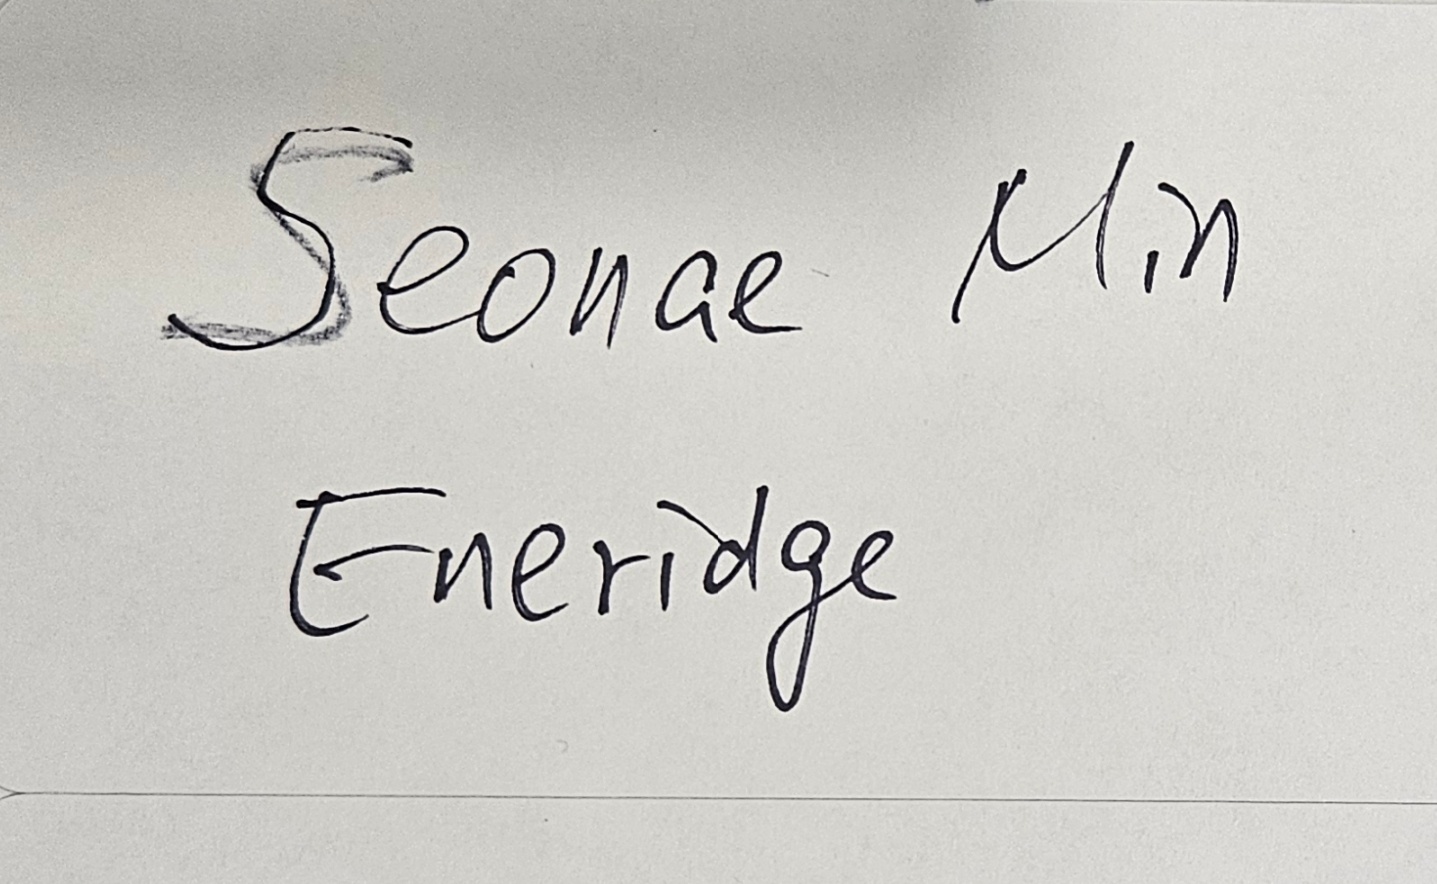 Seonae Min
Eneridge